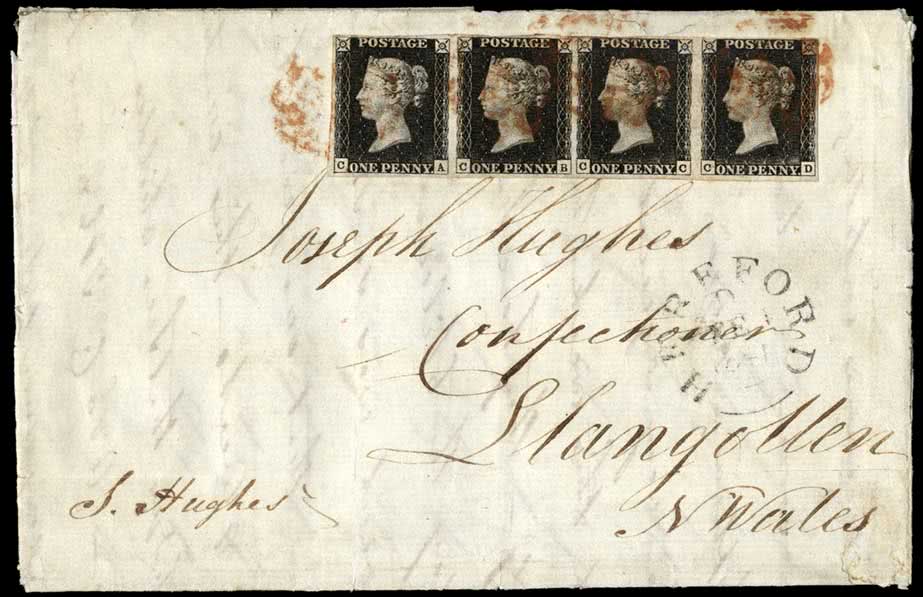 POSTAGE POSTAGE POSTAGE POSTAGE
C ONE PENNY A C ONE PENNY B C ONE PENNY C C ONE PENNY D
Joseph Hughes
HEREFORD
Confectioner
Llangollen
J. Hughes
N Wales